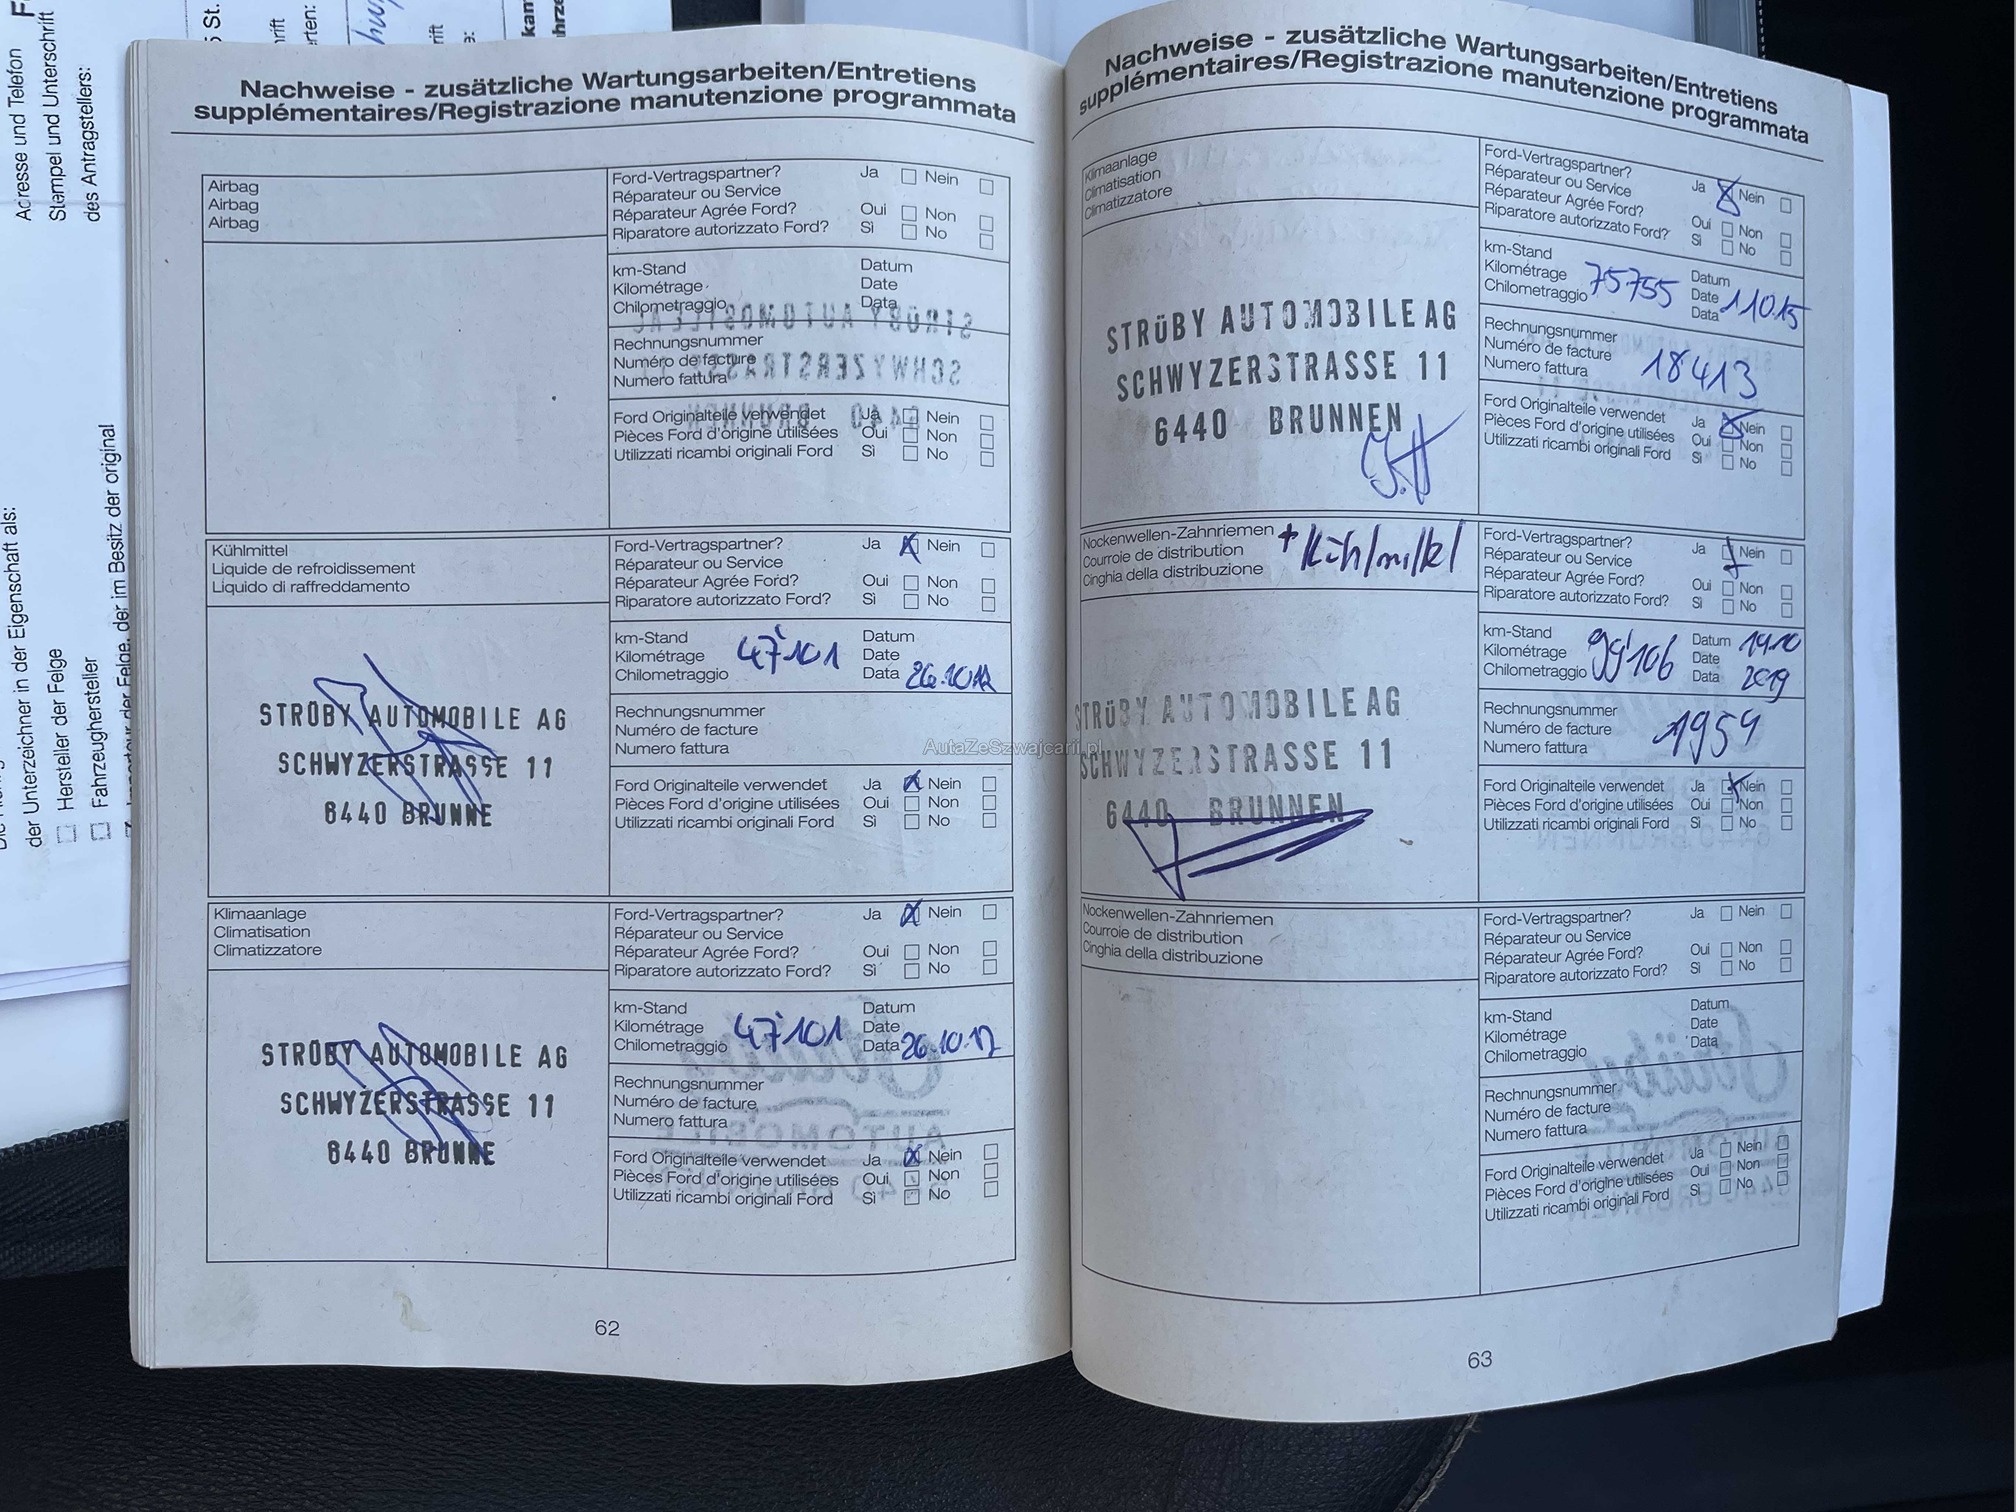 Adresse und Telefon
Stempel und Unterschrift
des Antragstellers:
der Unterzeichner in der Eigenschaft als:
Hersteller der Felge
Fahrzeughersteller
der Felge, der im Besitz der original
Nachweise - zusätzliche Wartungsarbeiten/Entretiens
supplémentaires/Registrazione manutenzione programmata
Airbag
Airbag
Airbag
Ford-Vertragspartner? Ja Nein
Réparateur ou Service
Réparateur Agrée Ford? Oui Non
Riparatore autorizzato Ford? Sì No
km-Stand Datum
Kilométrage Date
Chilometraggio Data
Rechnungsnummer
Numéro de facture
Numero fattura
Ford Originalteile verwendet Ja Nein
Pièces Ford d'origine utilisées Oui Non
Utilizzati ricambi originali Ford Sì No
Kühlmittel
Liquide de refroidissement
Liquido di raffreddamento
STRÜBY AUTOMOBILE AG
SCHWYZERSTRASSE 11
6440 BRUNNE
Ford-Vertragspartner? Ja Nein
Réparateur ou Service
Réparateur Agrée Ford? Oui Non
Riparatore autorizzato Ford? Sì No
km-Stand Datum
Kilométrage 47'101 Date
Chilometraggio Data 26.10.12
Rechnungsnummer
Numéro de facture
Numero fattura
Ford Originalteile verwendet Ja Nein
Pièces Ford d'origine utilisées Oui Non
Utilizzati ricambi originali Ford Sì No
Klimaanlage
Climatisation
Climatizzatore
STRÜBY AUTOMOBILE AG
SCHWYZERSTRASSE 11
6440 BRUNNE
Ford-Vertragspartner? Ja Nein
Réparateur ou Service
Réparateur Agrée Ford? Oui Non
Riparatore autorizzato Ford? Sì No
km-Stand Datum
Kilométrage 47'101 Date
Chilometraggio Data 26.10.12
Rechnungsnummer
Numéro de facture
Numero fattura
Ford Originalteile verwendet Ja Nein
Pièces Ford d'origine utilisées Oui Non
Utilizzati ricambi originali Ford Sì No
62
Nachweise - zusätzliche Wartungsarbeiten/Entretiens
supplémentaires/Registrazione manutenzione programmata
Klimaanlage
Climatisation
Climatizzatore
STRÜBY AUTOMOBILE AG
SCHWYZERSTRASSE 11
6440 BRUNNEN
Ford-Vertragspartner? Ja Nein
Réparateur ou Service
Réparateur Agrée Ford? Oui Non
Riparatore autorizzato Ford? Sì No
km-Stand Datum
Kilométrage 75755 Date 1.10.15
Chilometraggio Data
Rechnungsnummer
Numéro de facture 18413
Numero fattura
Ford Originalteile verwendet Ja Nein
Pièces Ford d'origine utilisées Oui Non
Utilizzati ricambi originali Ford Sì No
Nockenwellen-Zahnriemen + Kühlmittel
Courroie de distribution
Cinghia della distribuzione
STRÜBY AUTOMOBILE AG
SCHWYZERSTRASSE 11
6440 BRUNNEN
Ford-Vertragspartner? Ja Nein
Réparateur ou Service
Réparateur Agrée Ford? Oui Non
Riparatore autorizzato Ford? Sì No
km-Stand Datum 14.10
Kilométrage 99'106 Date
Chilometraggio Data 2019
Rechnungsnummer
Numéro de facture 1959
Numero fattura
Ford Originalteile verwendet Ja Nein
Pièces Ford d'origine utilisées Oui Non
Utilizzati ricambi originali Ford Sì No
Nockenwellen-Zahnriemen
Courroie de distribution
Cinghia della distribuzione
Ford-Vertragspartner? Ja Nein
Réparateur ou Service
Réparateur Agrée Ford? Oui Non
Riparatore autorizzato Ford? Sì No
km-Stand Datum
Kilométrage Date
Chilometraggio Data
Rechnungsnummer
Numéro de facture
Numero fattura
Ford Originalteile verwendet Ja Nein
Pièces Ford d'origine utilisées Oui Non
Utilizzati ricambi originali Ford Sì No
63
AutaZeSzwajcarii.pl